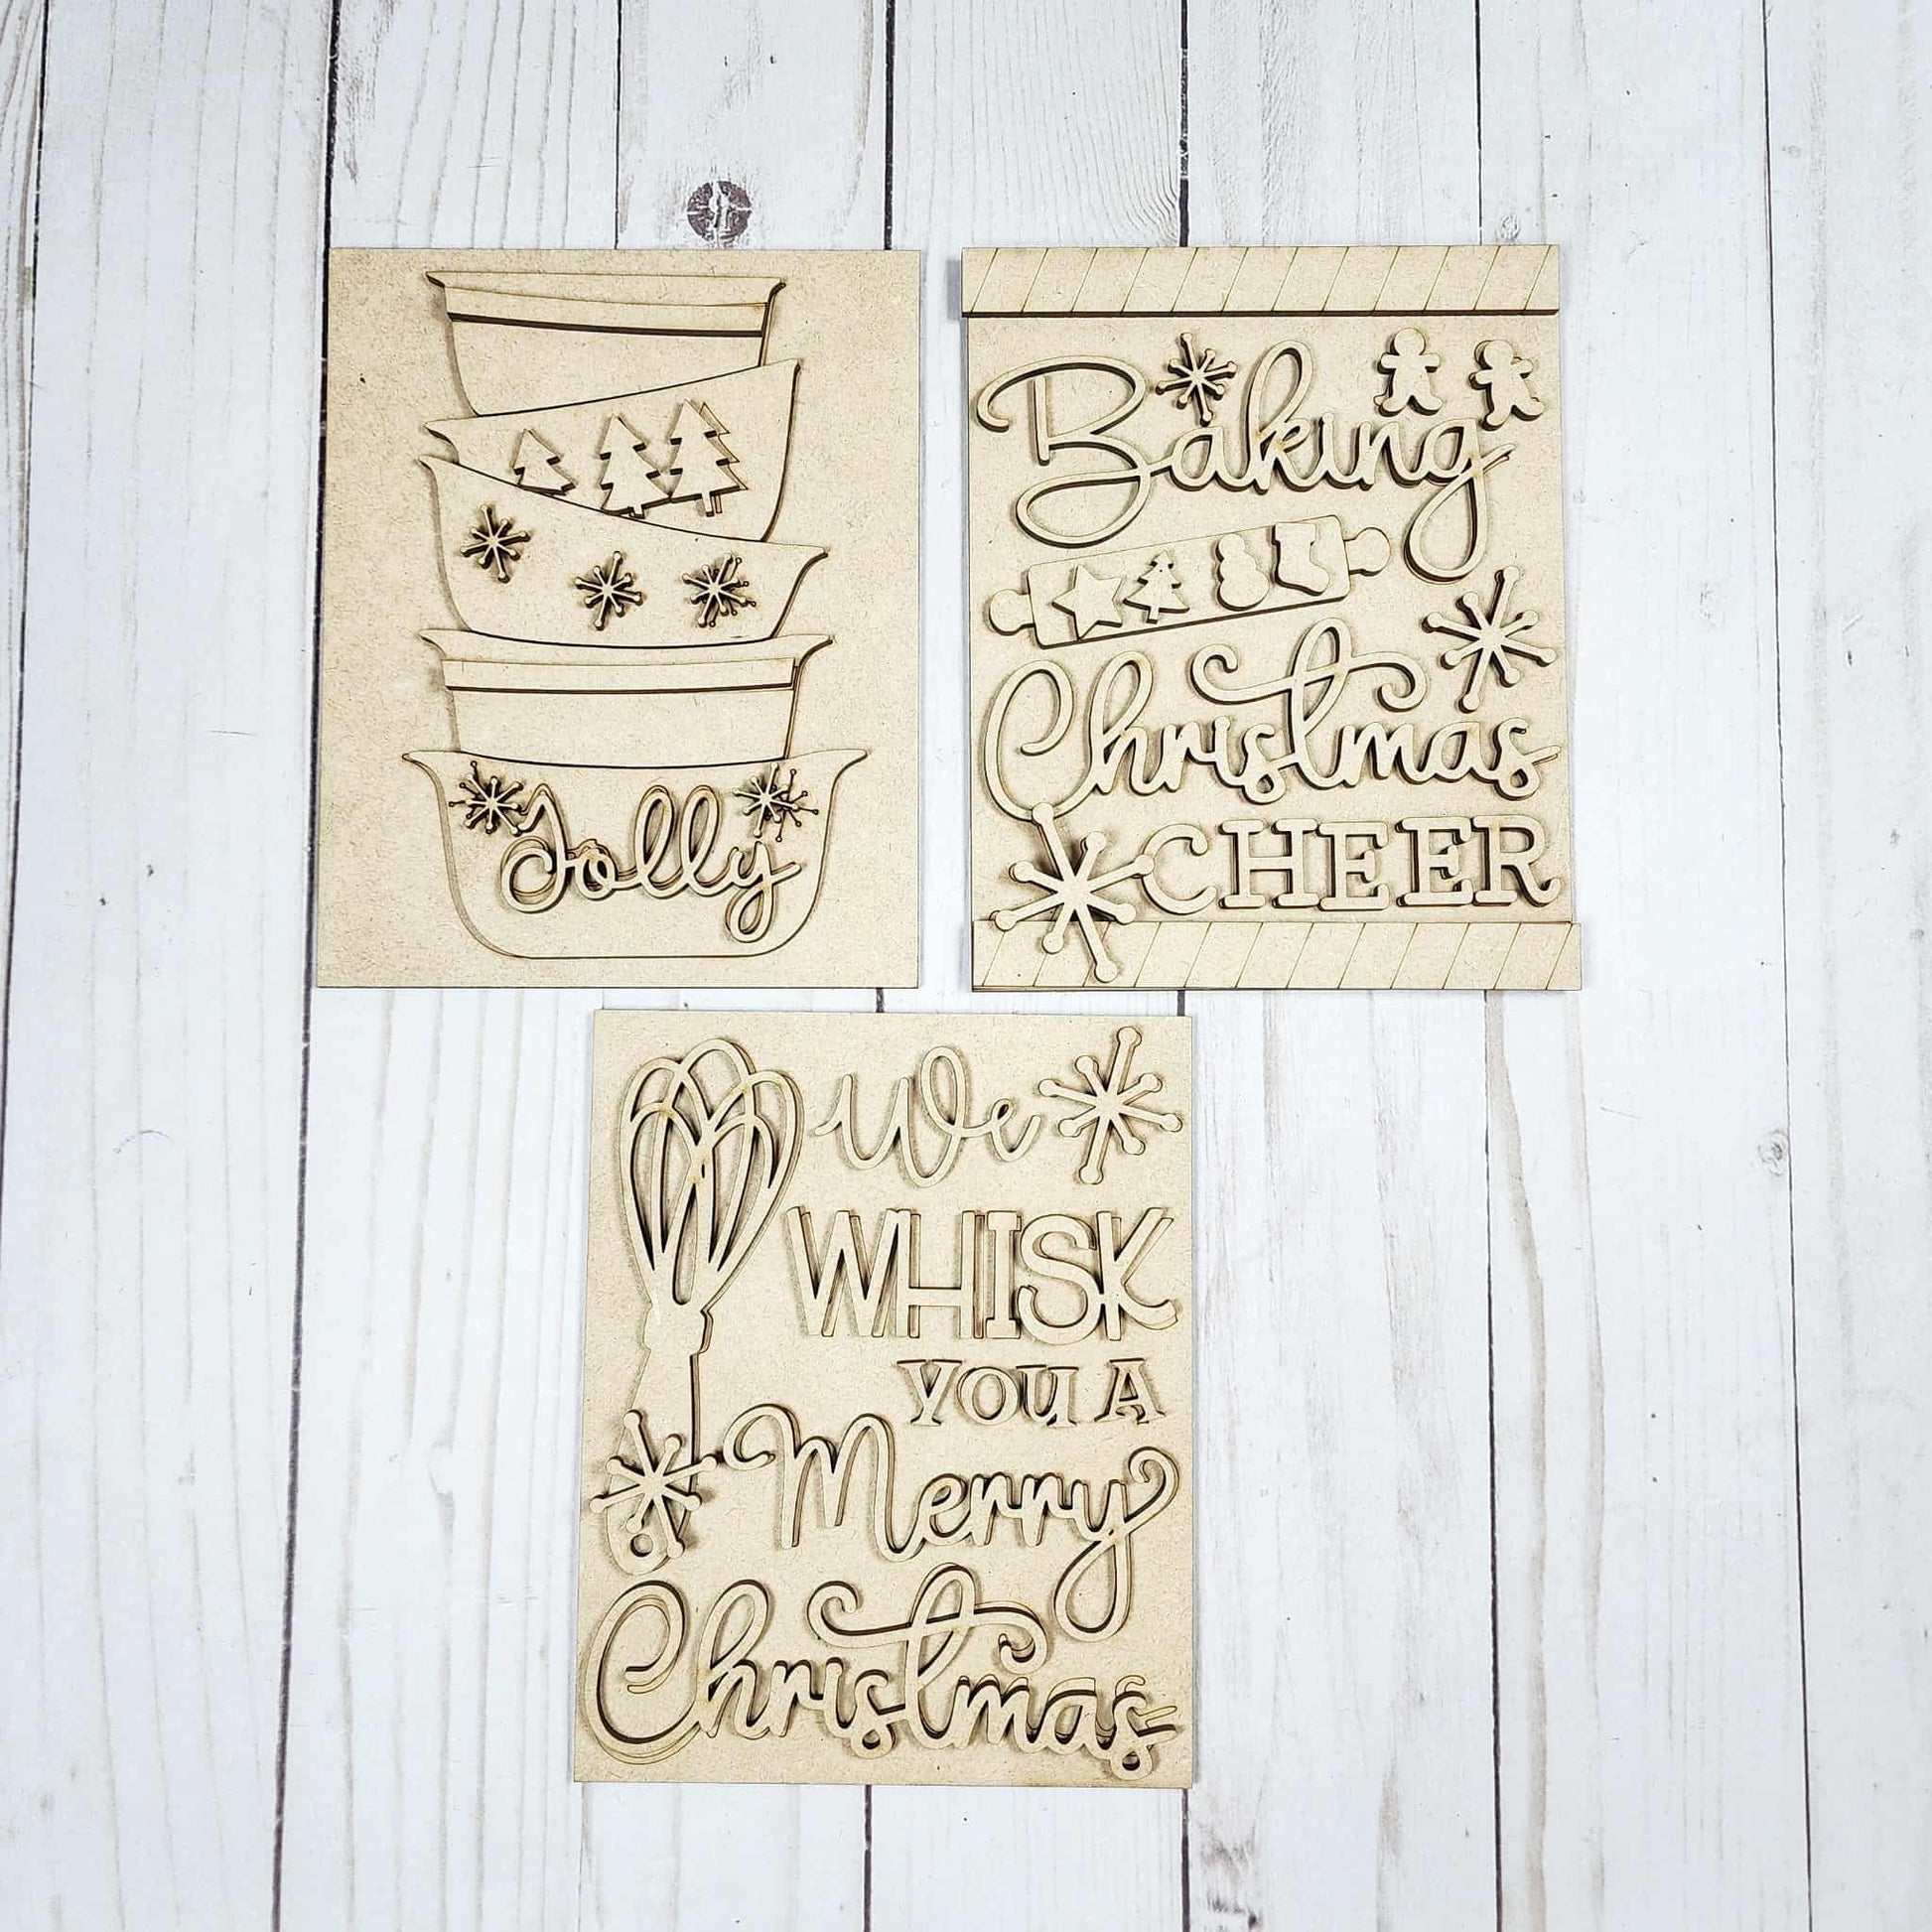 Jolly
Baking
Christmas
CHEER
We
WHISK
YOU A
Merry
Christmas